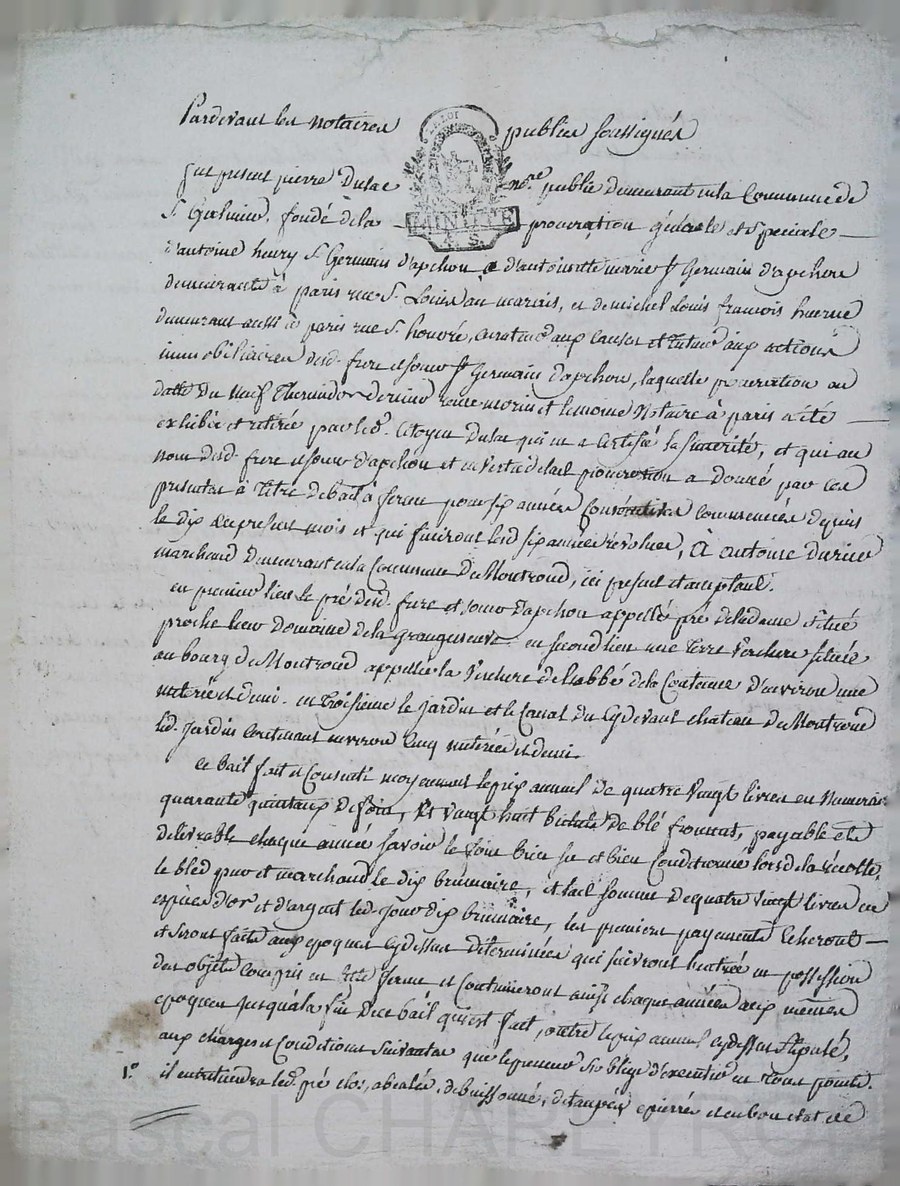 Pardevant les notaires publics soussignés
LA LOI
MINUTE
Fut present pierre Dulac no.re public demeurant en la Commune de
St. Galmier, fondé de la procuration générale et Speciale
d'antoine henry St. Germain d'apchon & d'antoinette marie St. Germain d'apchon
demeurants à paris rue St. Louis au marais, et de michel Louis françois huerne
demeurant aussi à paris rue St. honoré, curateur aux causes et tuteur aux actions
immobiliaires desd. frere et soeur St. Germain d'apchon, laquelle procuration en
datte du neuf Thermidor dernier reçue morin et lemoine Notaires à paris a été
exhibée et retirée par led. Citoyen Dulac qui en a certifié la sincerité, et qui au
nom desd. frere et soeur d'apchon et en vertu de lad. procuration a donné par ces
presentes à titre de bail à ferme pour six années Consécutives commencées depuis
le dix du present mois et qui finiront lesd. six années révolues, à antoine durieu
marchand demeurant en la Commune de Montrond, ici present et acceptant.
en premier lieu le pré desd. frere et soeur d'apchon appellé pré de la dame situé
proche leur domaine de la grangeneuve en second lieu une terre verchere située
au bourg de Montrond appellée la verchere de l'abbé de la Contenue d'environ une
meterée et demi. en troisieme le jardin et le Canal du cydevant chateau de Montrond
led. jardin contenant environ cinq meterées et demi.
ce bail fait et consenti moyennant le prix annuel de quatre vingt livres en numeraire
quarante quintaux de foin, et vingt huit bichets de blé froment, payable et
delivrable chaque année savoir le foin bien sec et bien conditionné lors de la récolte,
le bled pur et marchand le dix brumaire, et lad. somme de quatre vingt livres en
espèces d'or et d'argent led. jour dix brumaire, les premiers payements echeront
et seront faits aux epoques cydessus déterminées qui suivront l'entrée en possession
des objets compris en cette ferme et continueront ainsi chaque années aux mêmes
epoques jusqu'à la fin de ce bail qui est fait, outre le prix annuel cydessus stipulé,
aux charges et conditions suivantes que le preneur s'oblige d'executer en tous points.
1.° il entretiendra led. pré clos, abealé, debuissonné, detaupé, epierré et en bon etat de
Pascal CHAPEYRON